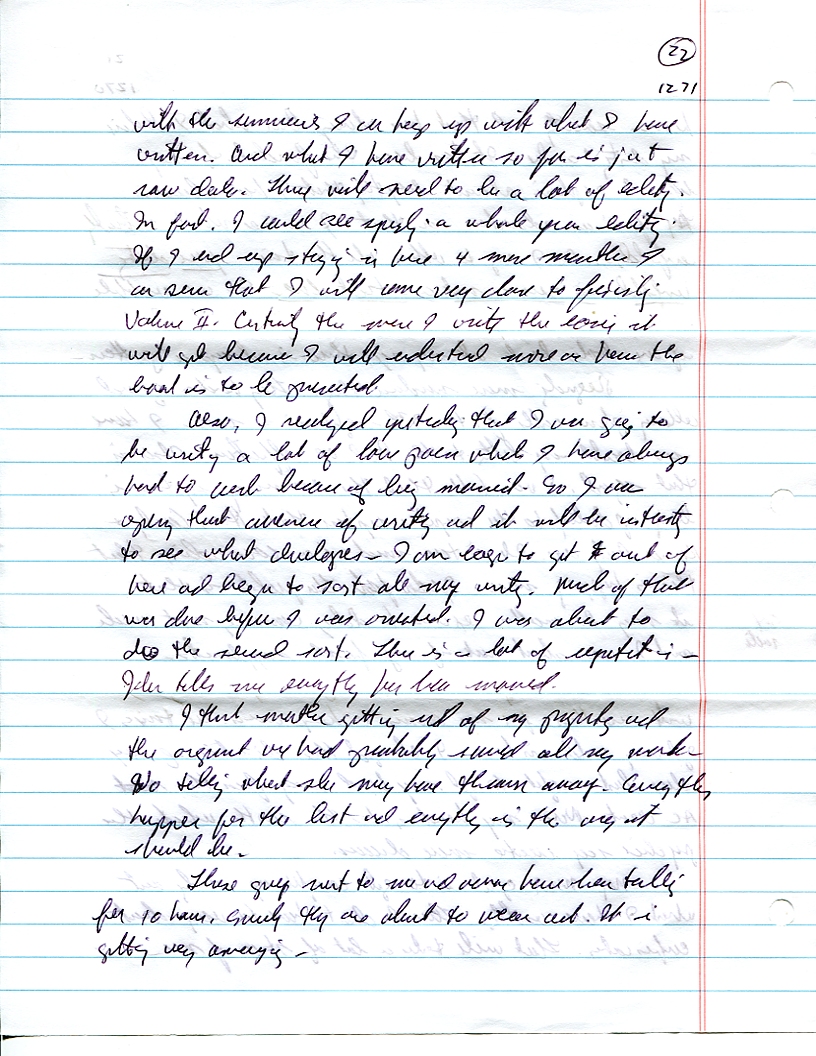 22
1271
with the summaries I can keep up with what I have
written. And what I have written so far is just
raw data. There will need to be a lot of editing.
In fact, I could see spending a whole year editing.
If I end up staying in here 4 more months I
am sure that I will come very close to finishing
Volume II. Certainly the more I write the easier it
will get because I will understand more on how the
book is to be presented.
Also, I realized yesterday that I was going to
be writing a lot of love poems which I have always
had to curb because of being married. So I am
opening that avenue of writing and it will be interesting
to see what develops - I am eager to get out of
here and begin to sort all my writing. Much of that
was done before I was arrested. I was about to
do the second sort. There is a lot of repetition -
tells me everything has been moved.
I think mother getting rid of my property and
the argument we had probably saved all my work -
No telling what she may have thrown away. Everything
happens for the best and everything is the way it
should be.
These guys next to me have been talking
for 10 hours. Surely they are about to wear out. It is
getting very annoying -